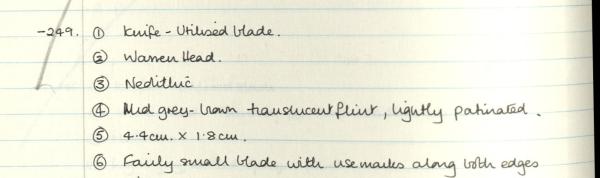 -249. ① Knife - Utilised blade.
② Warren Head.
③ Neolithic
④ Mid grey-brown translucent flint, lightly patinated.
⑤ 4.4cm. x 1.8cm.
⑥ Fairly small blade with use marks along both edges